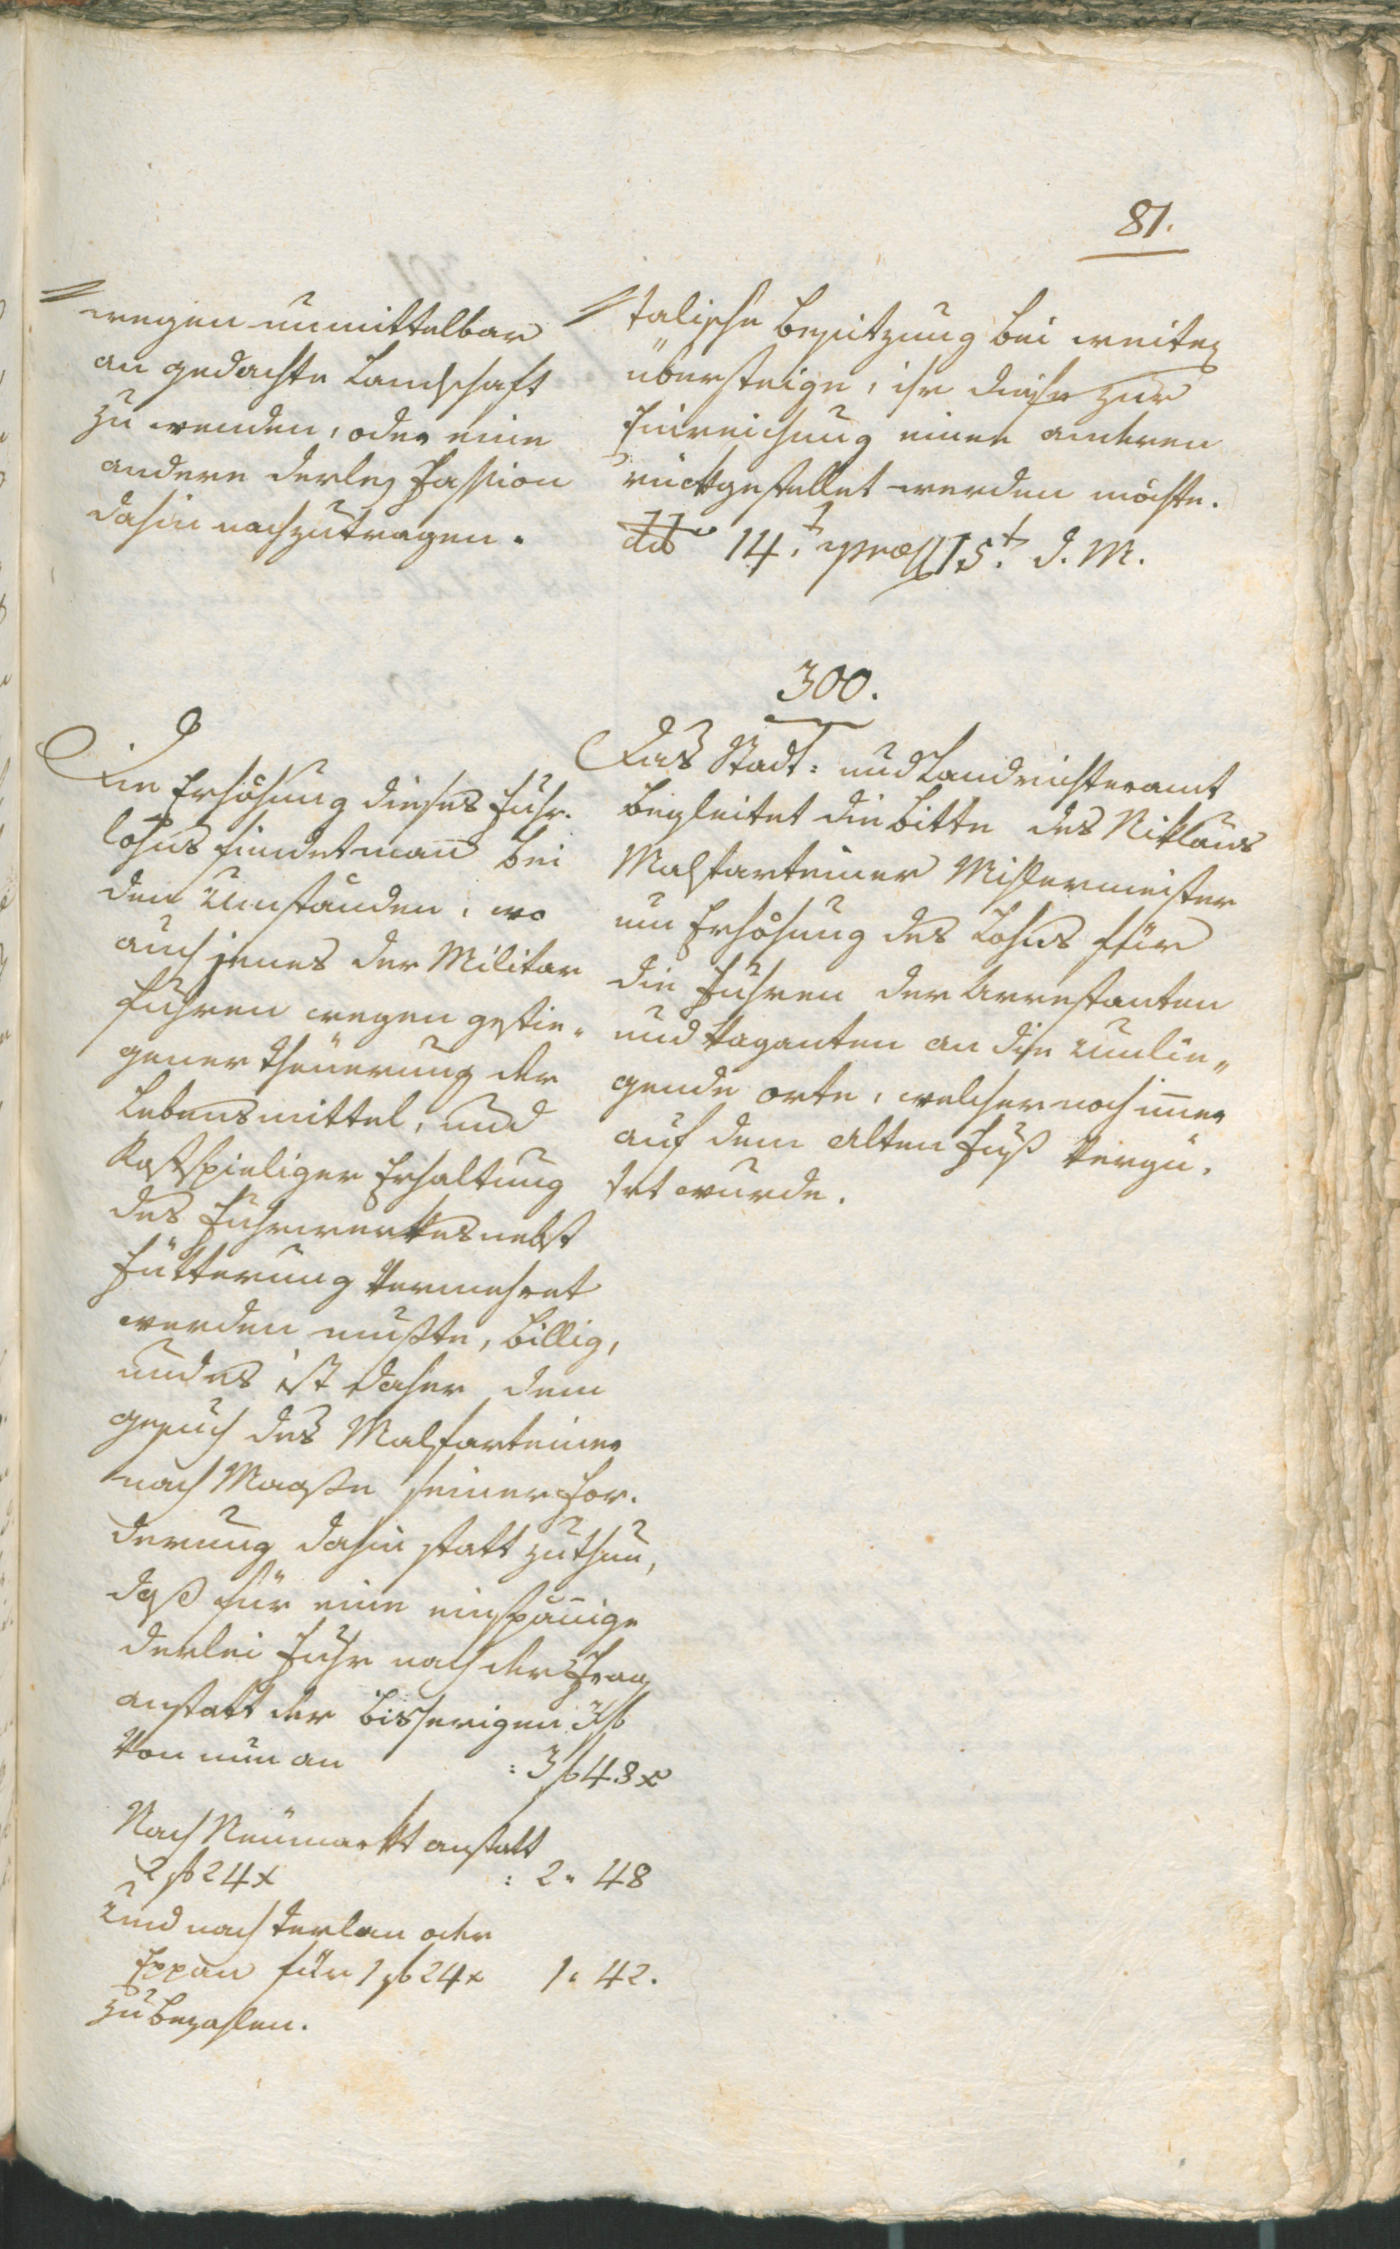 81.
wegen unmittelbar
an gedachte Landschaft
zu wenden, oder eine
andere derleӱ Fassion
dahin nachzutragen.
talische Besitzung bei weitem
übersteige, ihr diese zur
Einreichung einer anderen
rückgestellet werden möchte.
ddo 14.t præs 15.t d. M.
300.
Die Erhöhung dieses Fuhr-
lohns findet man bei
den Umständen, wo
auch jenes der Militar
fuhren wegen gestie-
gener Theuerung der
Lebensmittel, und
Kostspieliger Erhaltung
des Fuhrwerkes nebst
Fütterung vermehret
werden mußte, billig,
und es ist daher dem
Gesuch des Malfarteiner
nach Maaße seiner For-
derung dahin statt zu thun,
daß für eine einspännige
derlei Fuhr nach
anstatt der bisherigen 3 f
von nun an : 3 f 48 x
Nach Neumarkt anstatt
2 f 24 x : 2 " 48
Und nach Terlan oder
Eppan für 1 f 24 x 1 " 42.
zu bezahlen.
Das Stadt- und Landrichteramt
begleitet die Bitte des Niklaus
Malfarteiner
um Erhöhung des Lohns für
die Fuhren der Arrestanten
und Vaganten an die umlie-
gende Orte, welcher noch immer
auf dem alten Fuß vergü-
tet wurde.